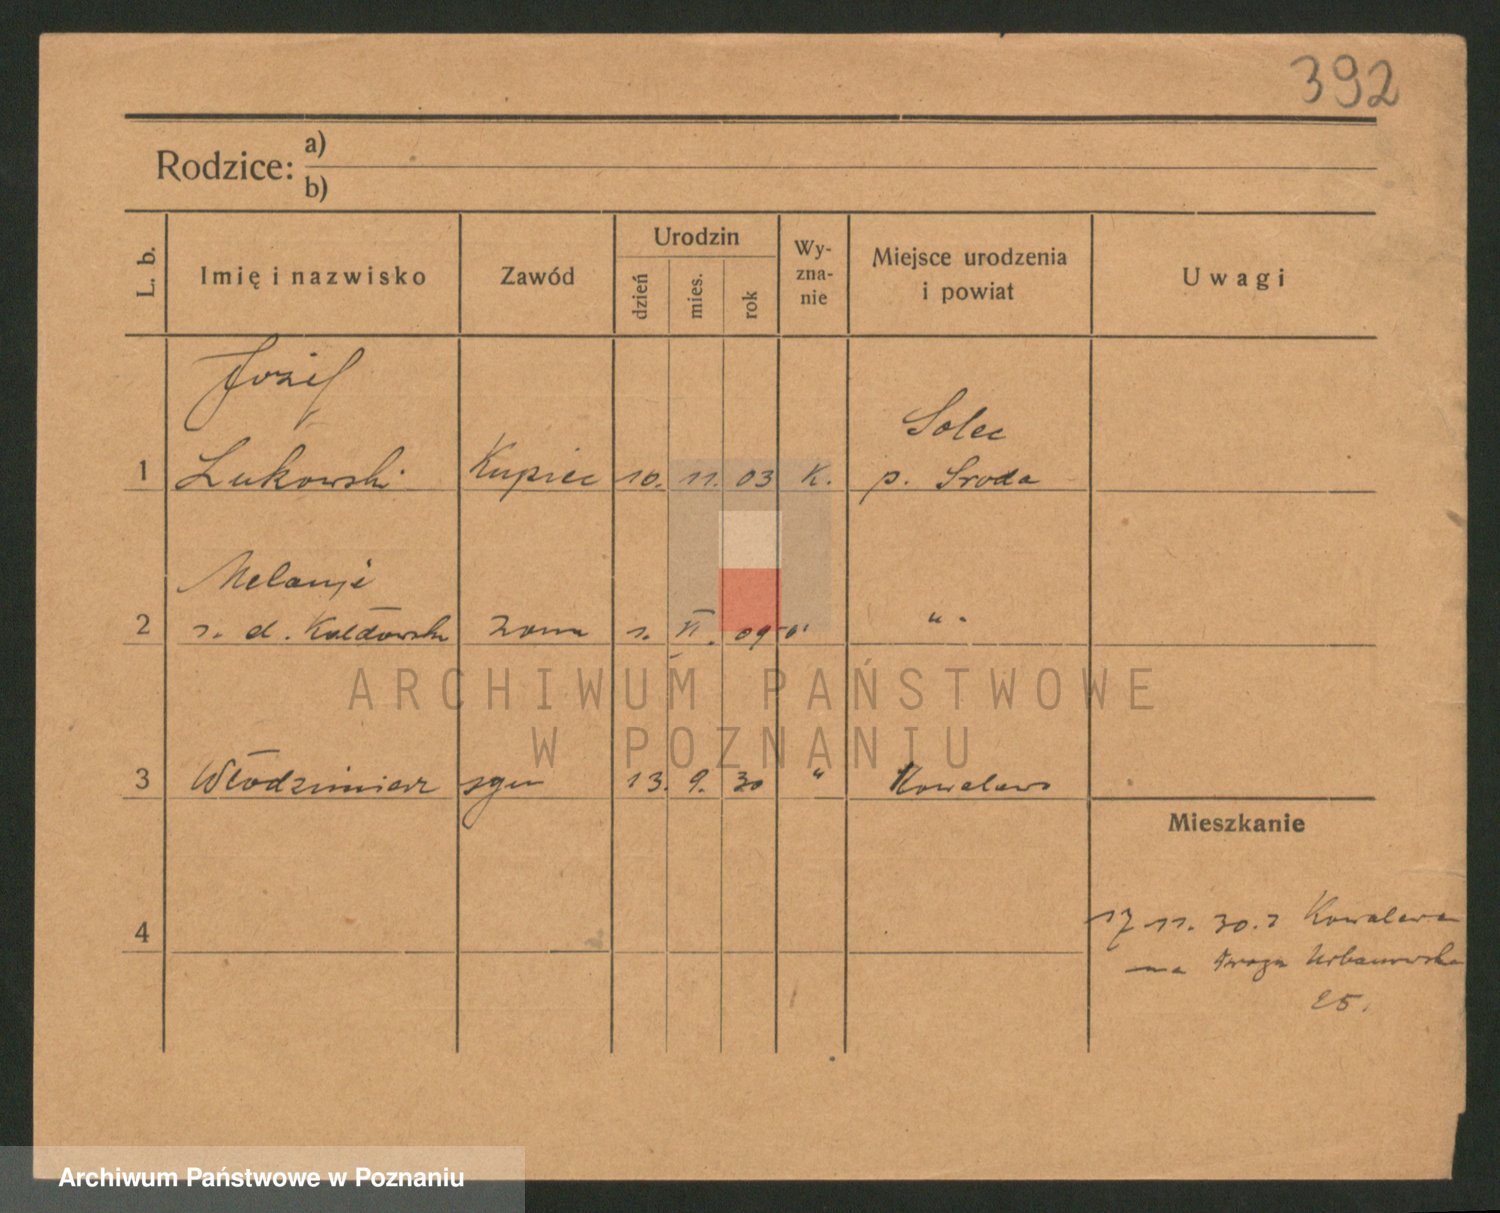 392
Rodzice: a)
b)
L. b.
Imię i nazwisko
Zawód
Urodzin
dzień
mies.
rok
Wy-
zna-
nie
Miejsce urodzenia
i powiat
Uwagi
Józef
1 Lukowski Kupiec 10. 11. 03 K. Solec
p. Sroda
Melanje
2 d. żona 1. VI. 09 " .
3 Włodzimierz syn 13. 9. 30 " Kowalewo
Mieszkanie
4
17 11. 30. z Kowalewa
na Urbanowska
25.
ARCHIWUM PAŃSTWOWE
W POZNANIU
Archiwum Państwowe w Poznaniu